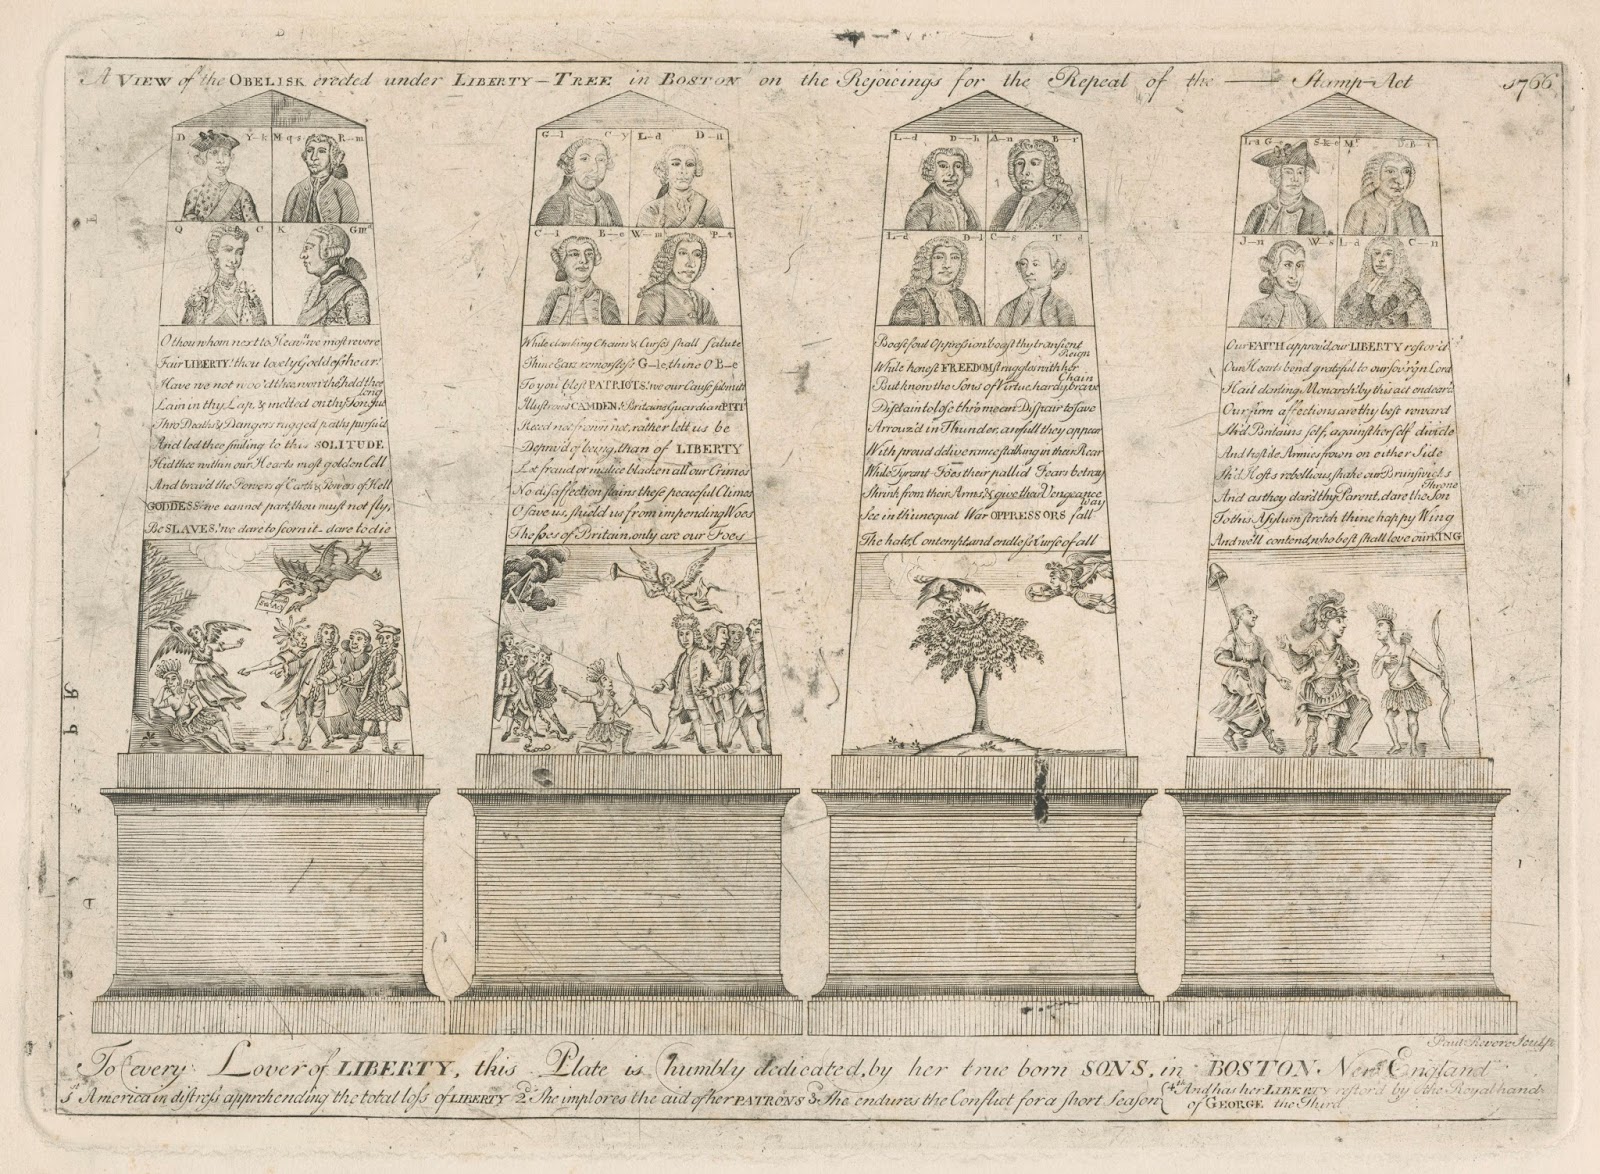 A VIEW of the OBELISK erected under LIBERTY-TREE in BOSTON on the Rejoicings for the Repeal of the — Stamp-Act 1766
D Y-k M-qs R-m
Q C K Gm
O thou whom next to Heav'n we most revere
Fair LIBERTY! thou lovely Goddess hear!
Have we not woo'd thee won thee held thee long
Lain in thy Lap & melted on thy Tongue
Thro Deaths & Dangers rugged paths pursu'd
And led thee smiling to this SOLITUDE
Hid thee within our Hearts most golden Cell
And brav'd the Powers of Earth & Powers of Hell
GODDESS! we cannot part, thou must not fly,
Be SLAVES! we dare to scorn it - dare to die
G-l C-y L-d D-u
C-l B-e W-m P-t
While clanking Chains & Curses shall salute
Thine Ears remorseless G-le, thine O B-e
To you blest PATRIOTS! we our Cause submit
Illustrous CAMDEN, & Britains Guardian PITT
Recede not frown not, rather let us be
Depriv'd of being, than of LIBERTY
Let fraud or malice blacken all our Crimes
No disaffection stains these peaceful Climes
O save us, shield us from impending Woes
The foes of Britain, only are our Foes
L-d D-h A-n B-r
L-d D-l C-s T-d
Boast foul Oppression, boast thy transient Reign
While honest FREEDOM struggles with her Chain
But know the Sons of Virtue, hardy, brave
Disdain to lose thro mean Dispair to save
Arrouz'd in Thunder, awfull they appear
With proud deliverance stalking in their Rear
While Tyrant-Foes their pallid Fears betray
Shrink from their Arms, & give their Vengeance way
See in th' unequal War OPPRESSORS fall
The hate, Contempt, and endless Curse of all
J-n W-s L-d C-n
Our FAITH approv'd, our LIBERTY restor'd
Our Hearts bend grateful to our sov'rgn Lord
Hail darling Monarch! by this act endear'd
Our firm affections are thy best reward
Sh'd Britains self, against herself divide
And hostile Armies frown on either Side
Sh'd Hosts rebellious, shake our Brunswick's Throne
And as they dar'd thy Parent, dare the Son
To this Asylum stretch thine happy Wing
And we'll contend, who best shall love our KING
Paul Revere Sculp
To every Lover of LIBERTY, this Plate is humbly dedicated, by her true born SONS, in BOSTON New England
1st America in distress apprehending the total loss of LIBERTY 2d She implores the aid of her PATRONS 3d She endures the Conflict for a short Season 4th And has her LIBERTY restor'd by the Royal hand of GEORGE the Third